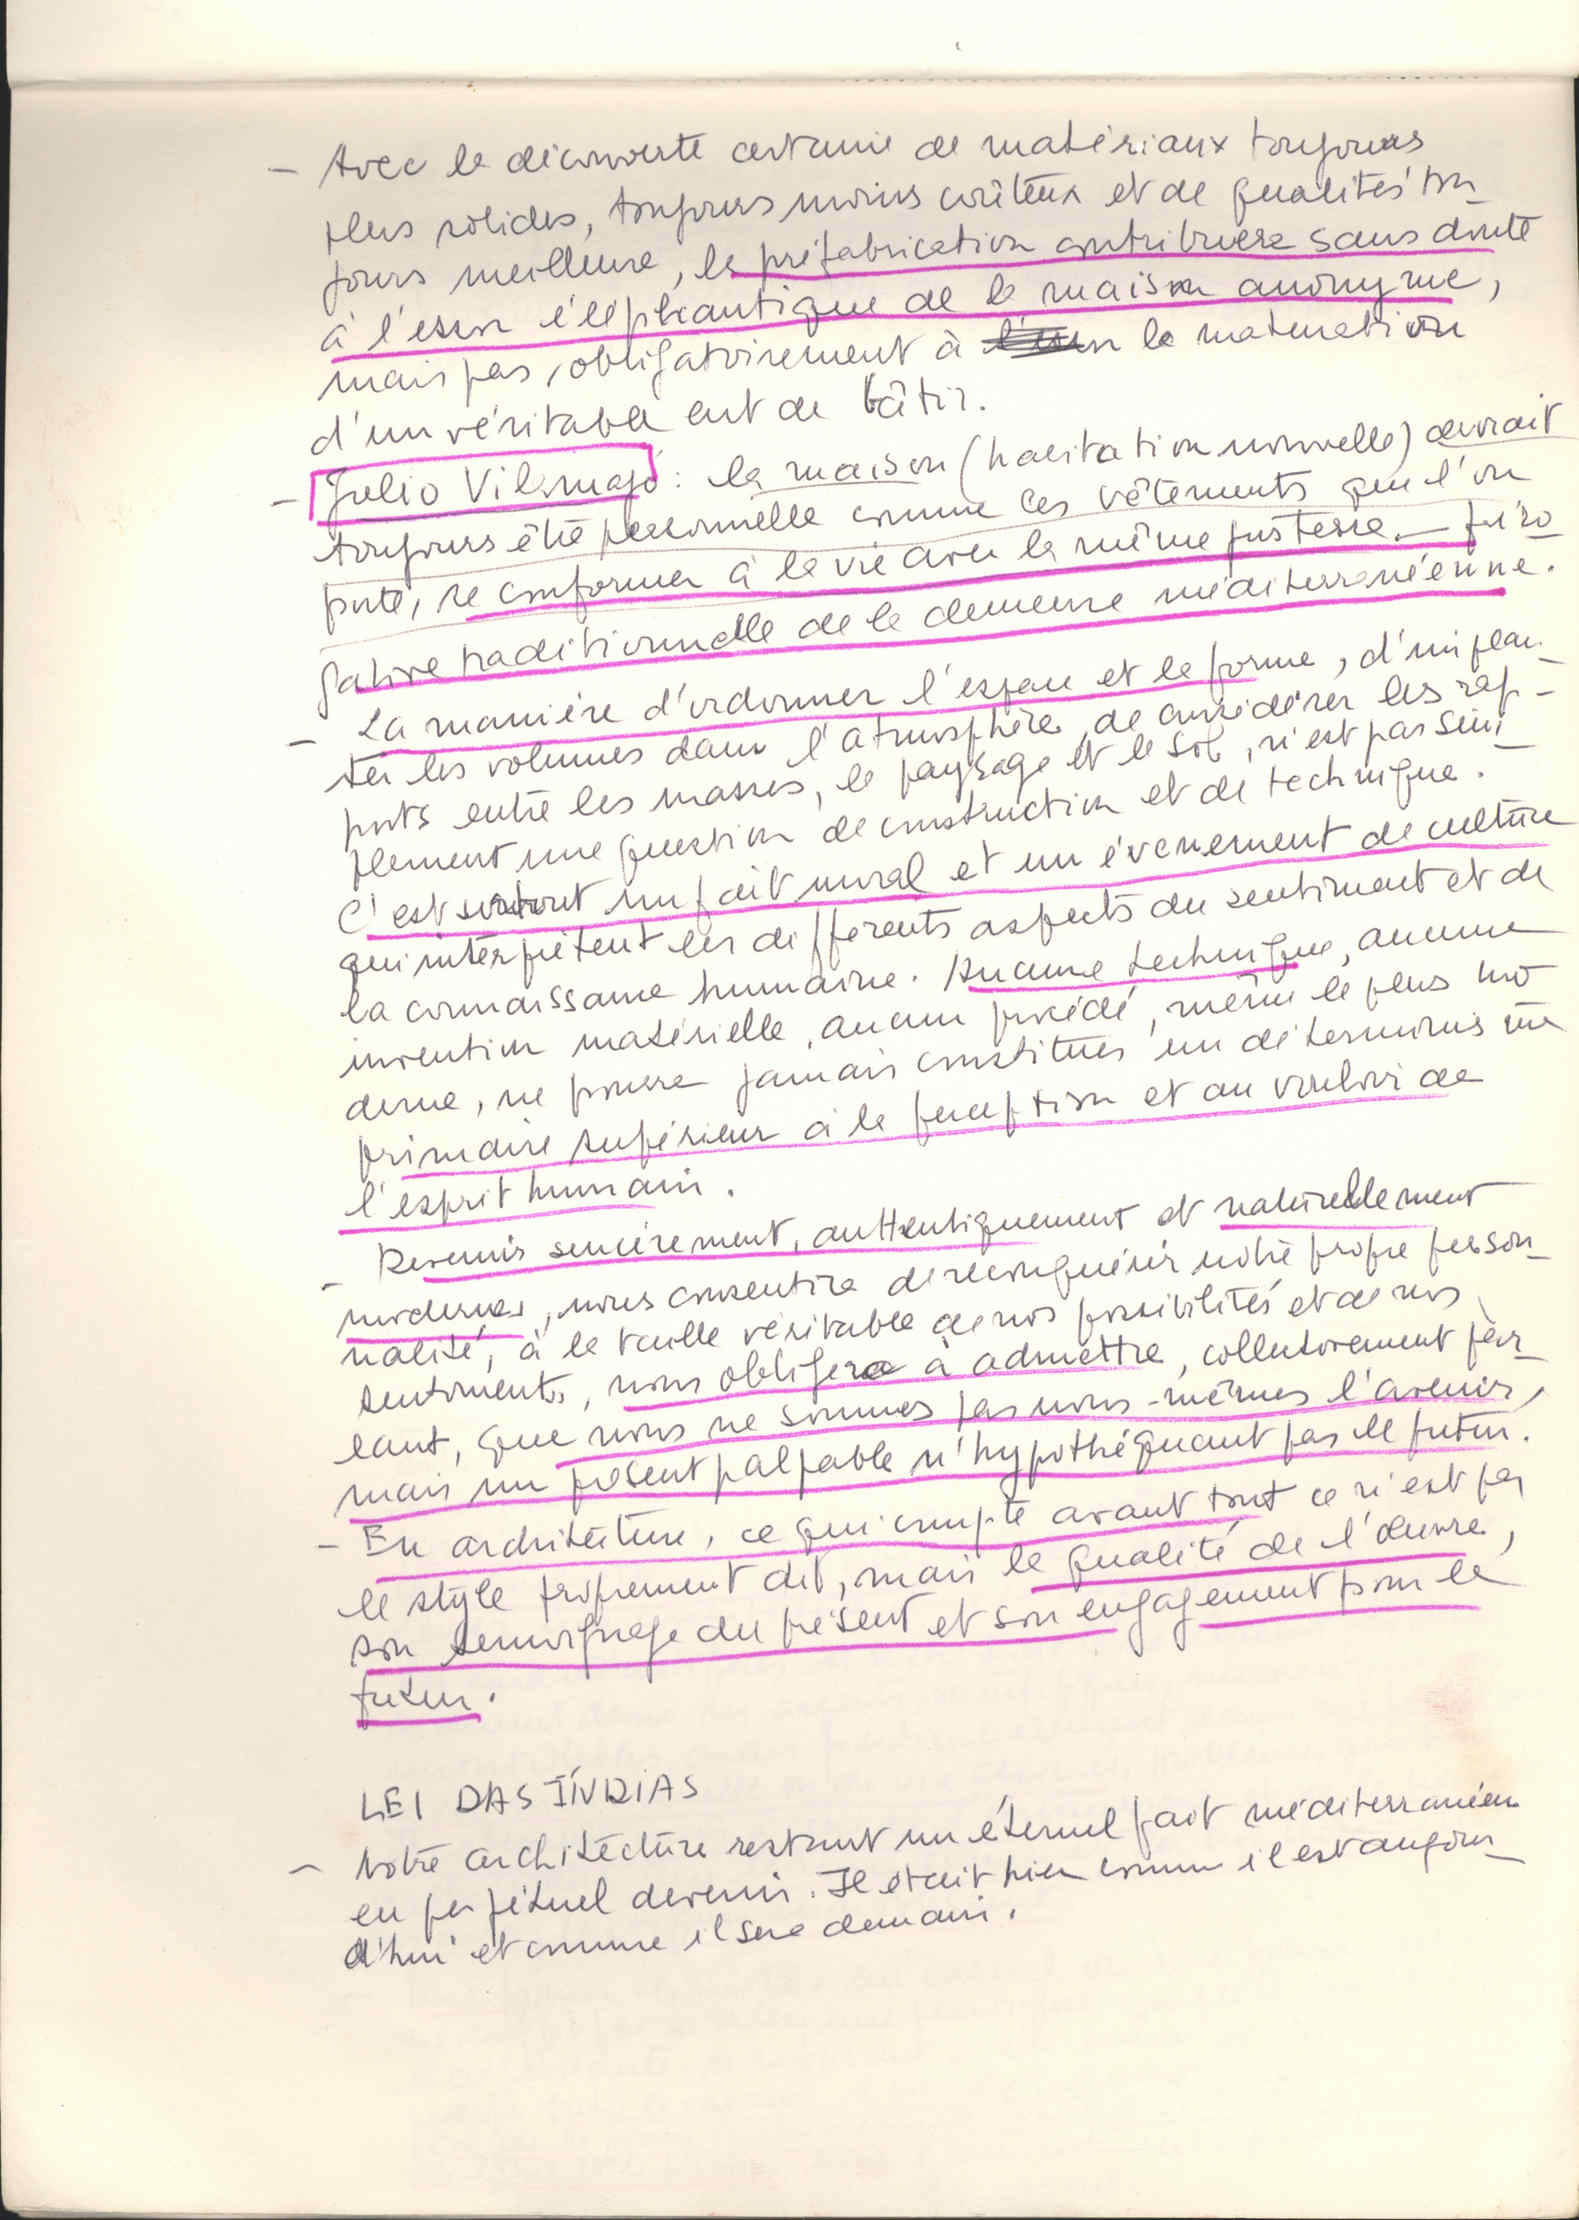 - Avec la découverte certaine de matériaux toujours
plus solides, toujours moins coûteux et de qualités tou_
jours meilleure, la préfabrication contribuera sans doute
à l'essor éléphantique de la maison anonyme,
mais pas, obligatoirement à la maturation
d'un véritable art de bâtir.
- Julio Vilamajó : la maison (habitation nouvelle) devrait
toujours être personnelle comme ces vêtements que l'on
porte, se conformer à la vie avec la même justesse _ préro
gative traditionnelle de la demeure méditerranéenne.
- La manière d'ordonner l'espace et la forme, d'implan_
ter les volumes dans l'atmosphère, de considérer les rap_
ports entre les masses, le paysage et le sol, n'est pas sim_
plement une question de construction et de technique.
C'est surtout un fait moral et un évenement de culture
qui interprètent les différents aspects du sentiment et de
la connaissance humaine. Aucune technique, aucune
invention matérielle, aucun procédé, même le plus mo
derne, ne pourra jamais constituer un déterminisme
primaire supérieur à la perception et au vouloir de
l'esprit humain.
- Devenir sincèrement, authentiquement et naturellement
modernes, nous consentira de reconquérir notre propre person_
nalité, à la taille véritable de nos possibilités et de nos
sentiments, nous obligera à admettre, collectivement par_
lant, que nous ne sommes pas nous-mêmes l'avenir,
mais un présent palpable n'hypothéquant pas le futur.
- En architecture, ce qui compte avant tout ce n'est pas
le style proprement dit, mais la qualité de l'œuvre,
son temoignage du présent et son engagement pour le
futur.
LEI DAS ÍNDIAS
- Notre architecture restant un éternel fait méditerranéen
en perpétuel devenir. Il était hier comme il est aujour_
d'hui et comme il sera demain.